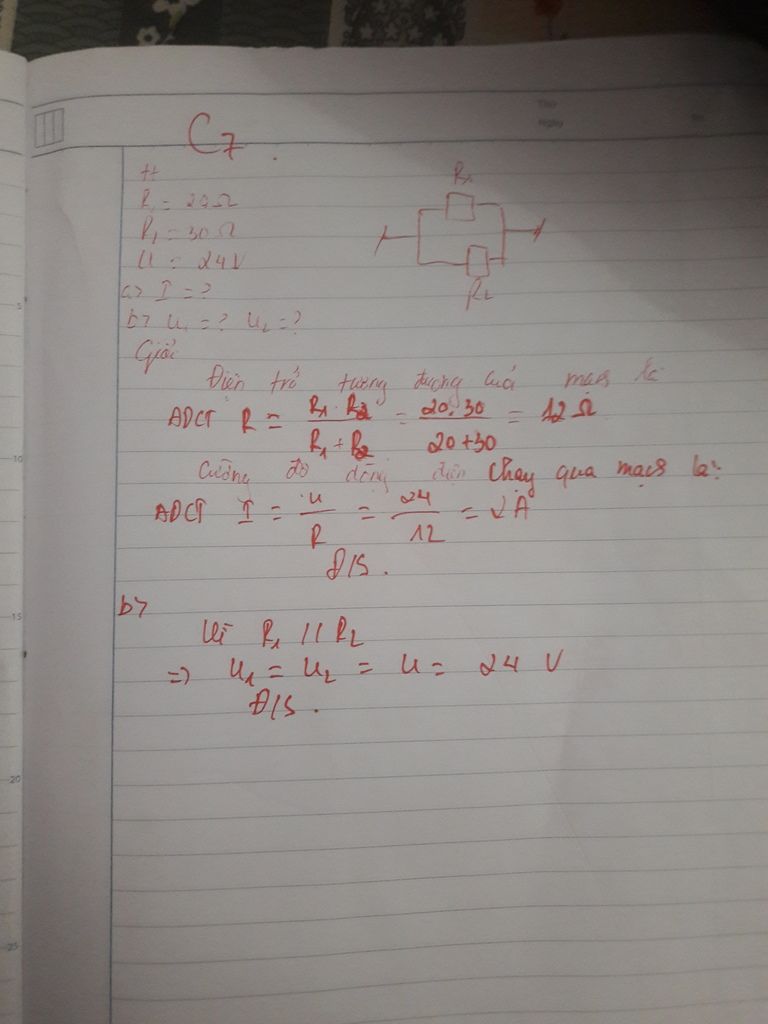 C7.
tt
R1 = 20Ω
R1 = 30Ω
U = 24V
a> I = ?
b> U1 = ? U2 = ?
R1
R2
Giải
Điện trở tương đương của mạch là
ADCT R = R1 . R2 / R1 + R2 = 20.30 / 20+30 = 12 Ω
Cường độ dòng điện chạy qua mạch là:
ADCT I = U / R = 24 / 12 = 2 A
Đ/S.
b>
Vì R1 // R2
=> U1 = U2 = U = 24 V
Đ/S.
5
10
15
20
25